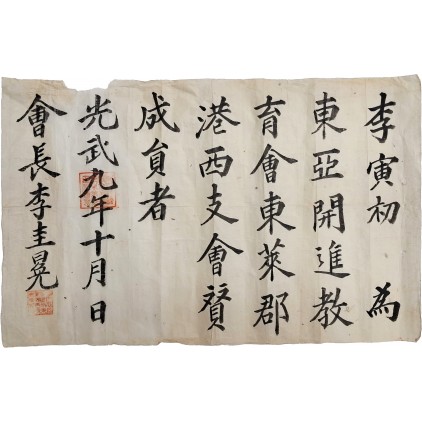 李寅初 為
東亞開進教
育會東萊郡
港西支會贊
成員者
光武九年十月 日
會長李圭晃